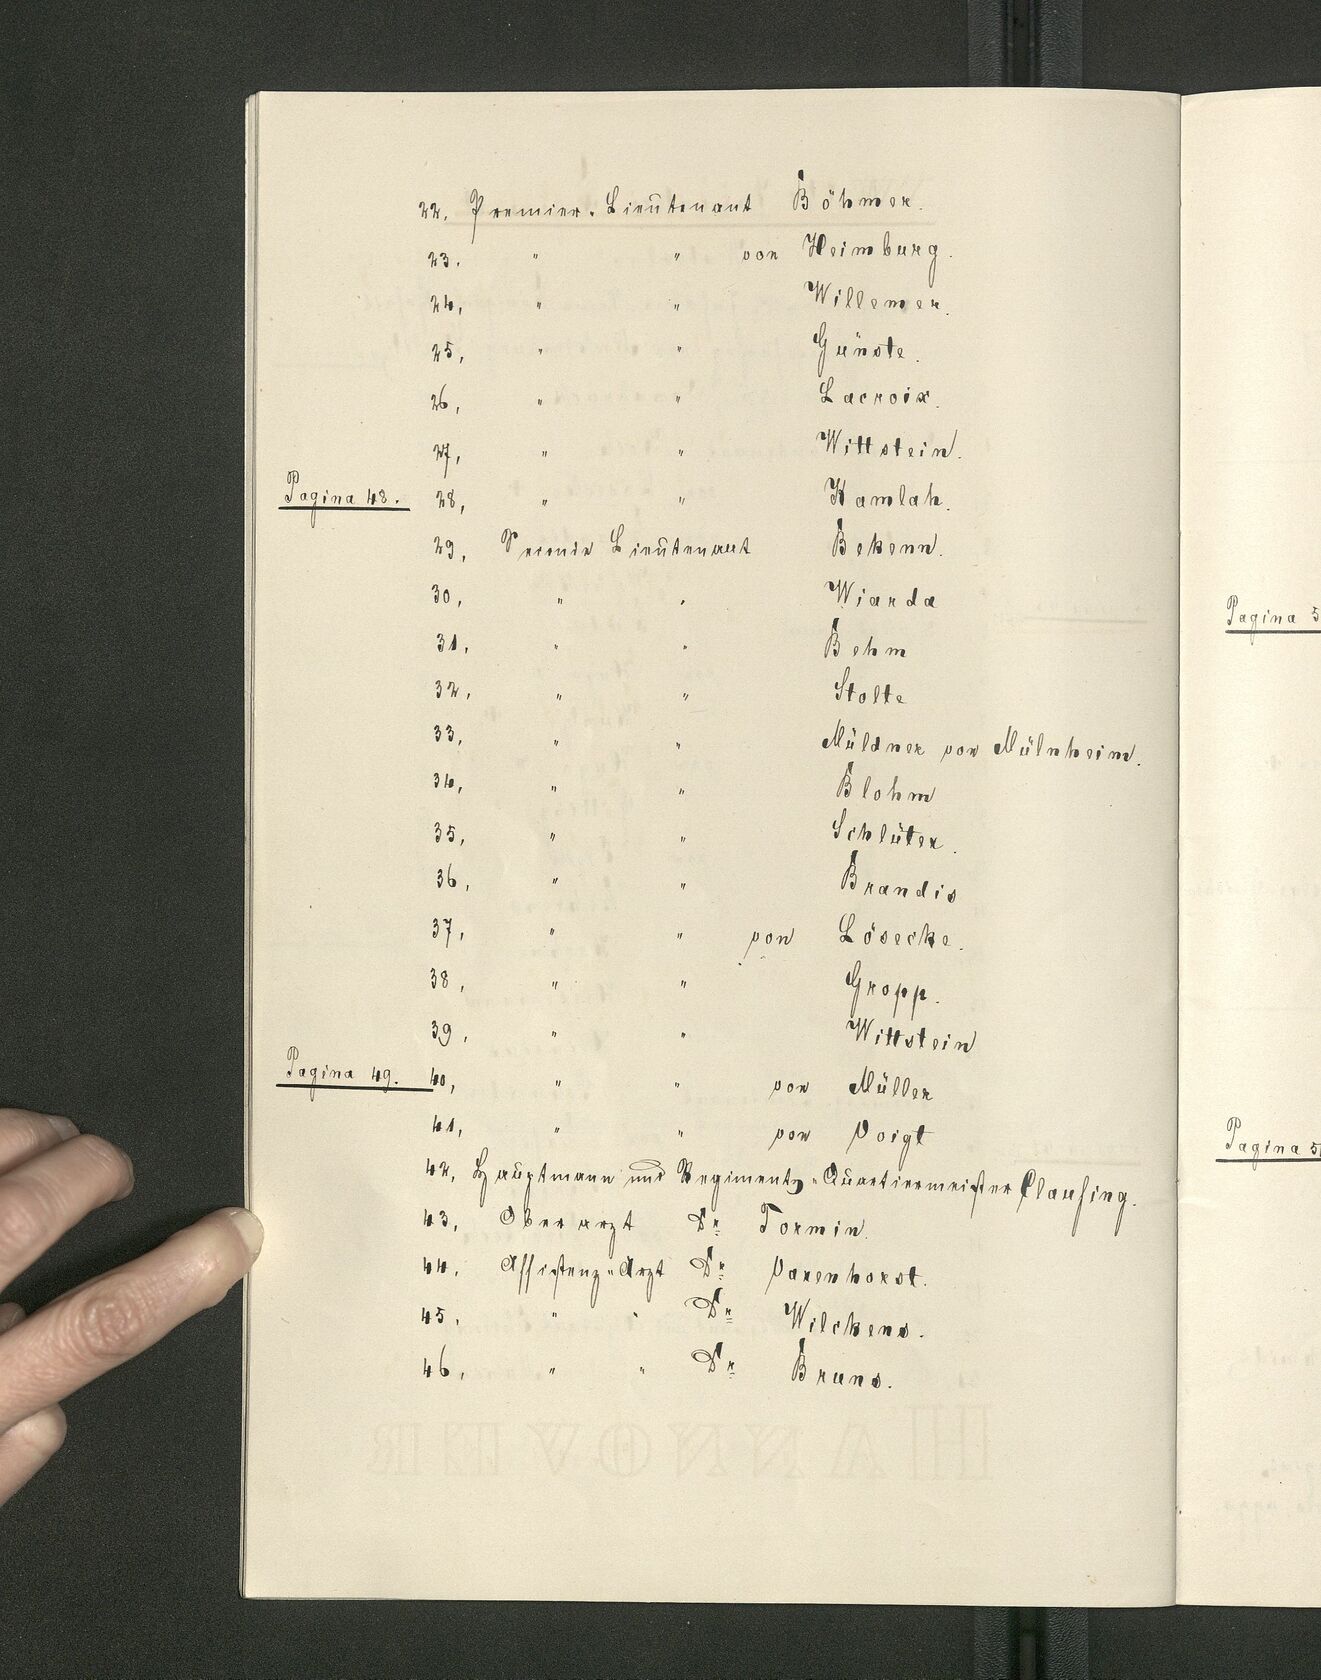 22. Premier-Lieutenant Böhmer.
23. " " von Heimburg.
24, " " Willemer.
25, " " Günste.
26, " " Lacroix.
27, " " Wittstein.
Pagina 48. 28, " " Kamlah.
29, Premier Lieutenant Bekenn.
30, " " Wiarda
31, " " Behm
32, " " Stolte
33, " " Müldner von Mülnheim.
34, " " Blohm
35, " " Schlüter.
36, " " Brandis
37, " " von Lösecke.
38, " " Gropp.
39, " " Wittstein
Pagina 49. 40, " " von Müller
41, " " von Voigt
42, Hauptmann und Regiments-Quartiermeister Clausing.
43, Oberarzt Dr Tormin.
44, Assistenz-Arzt Dr Varenhorst.
45, " " Dr Wilckens.
46, " " Dr Bruns.
Pagina 5
Pagina 5
HANNOVER